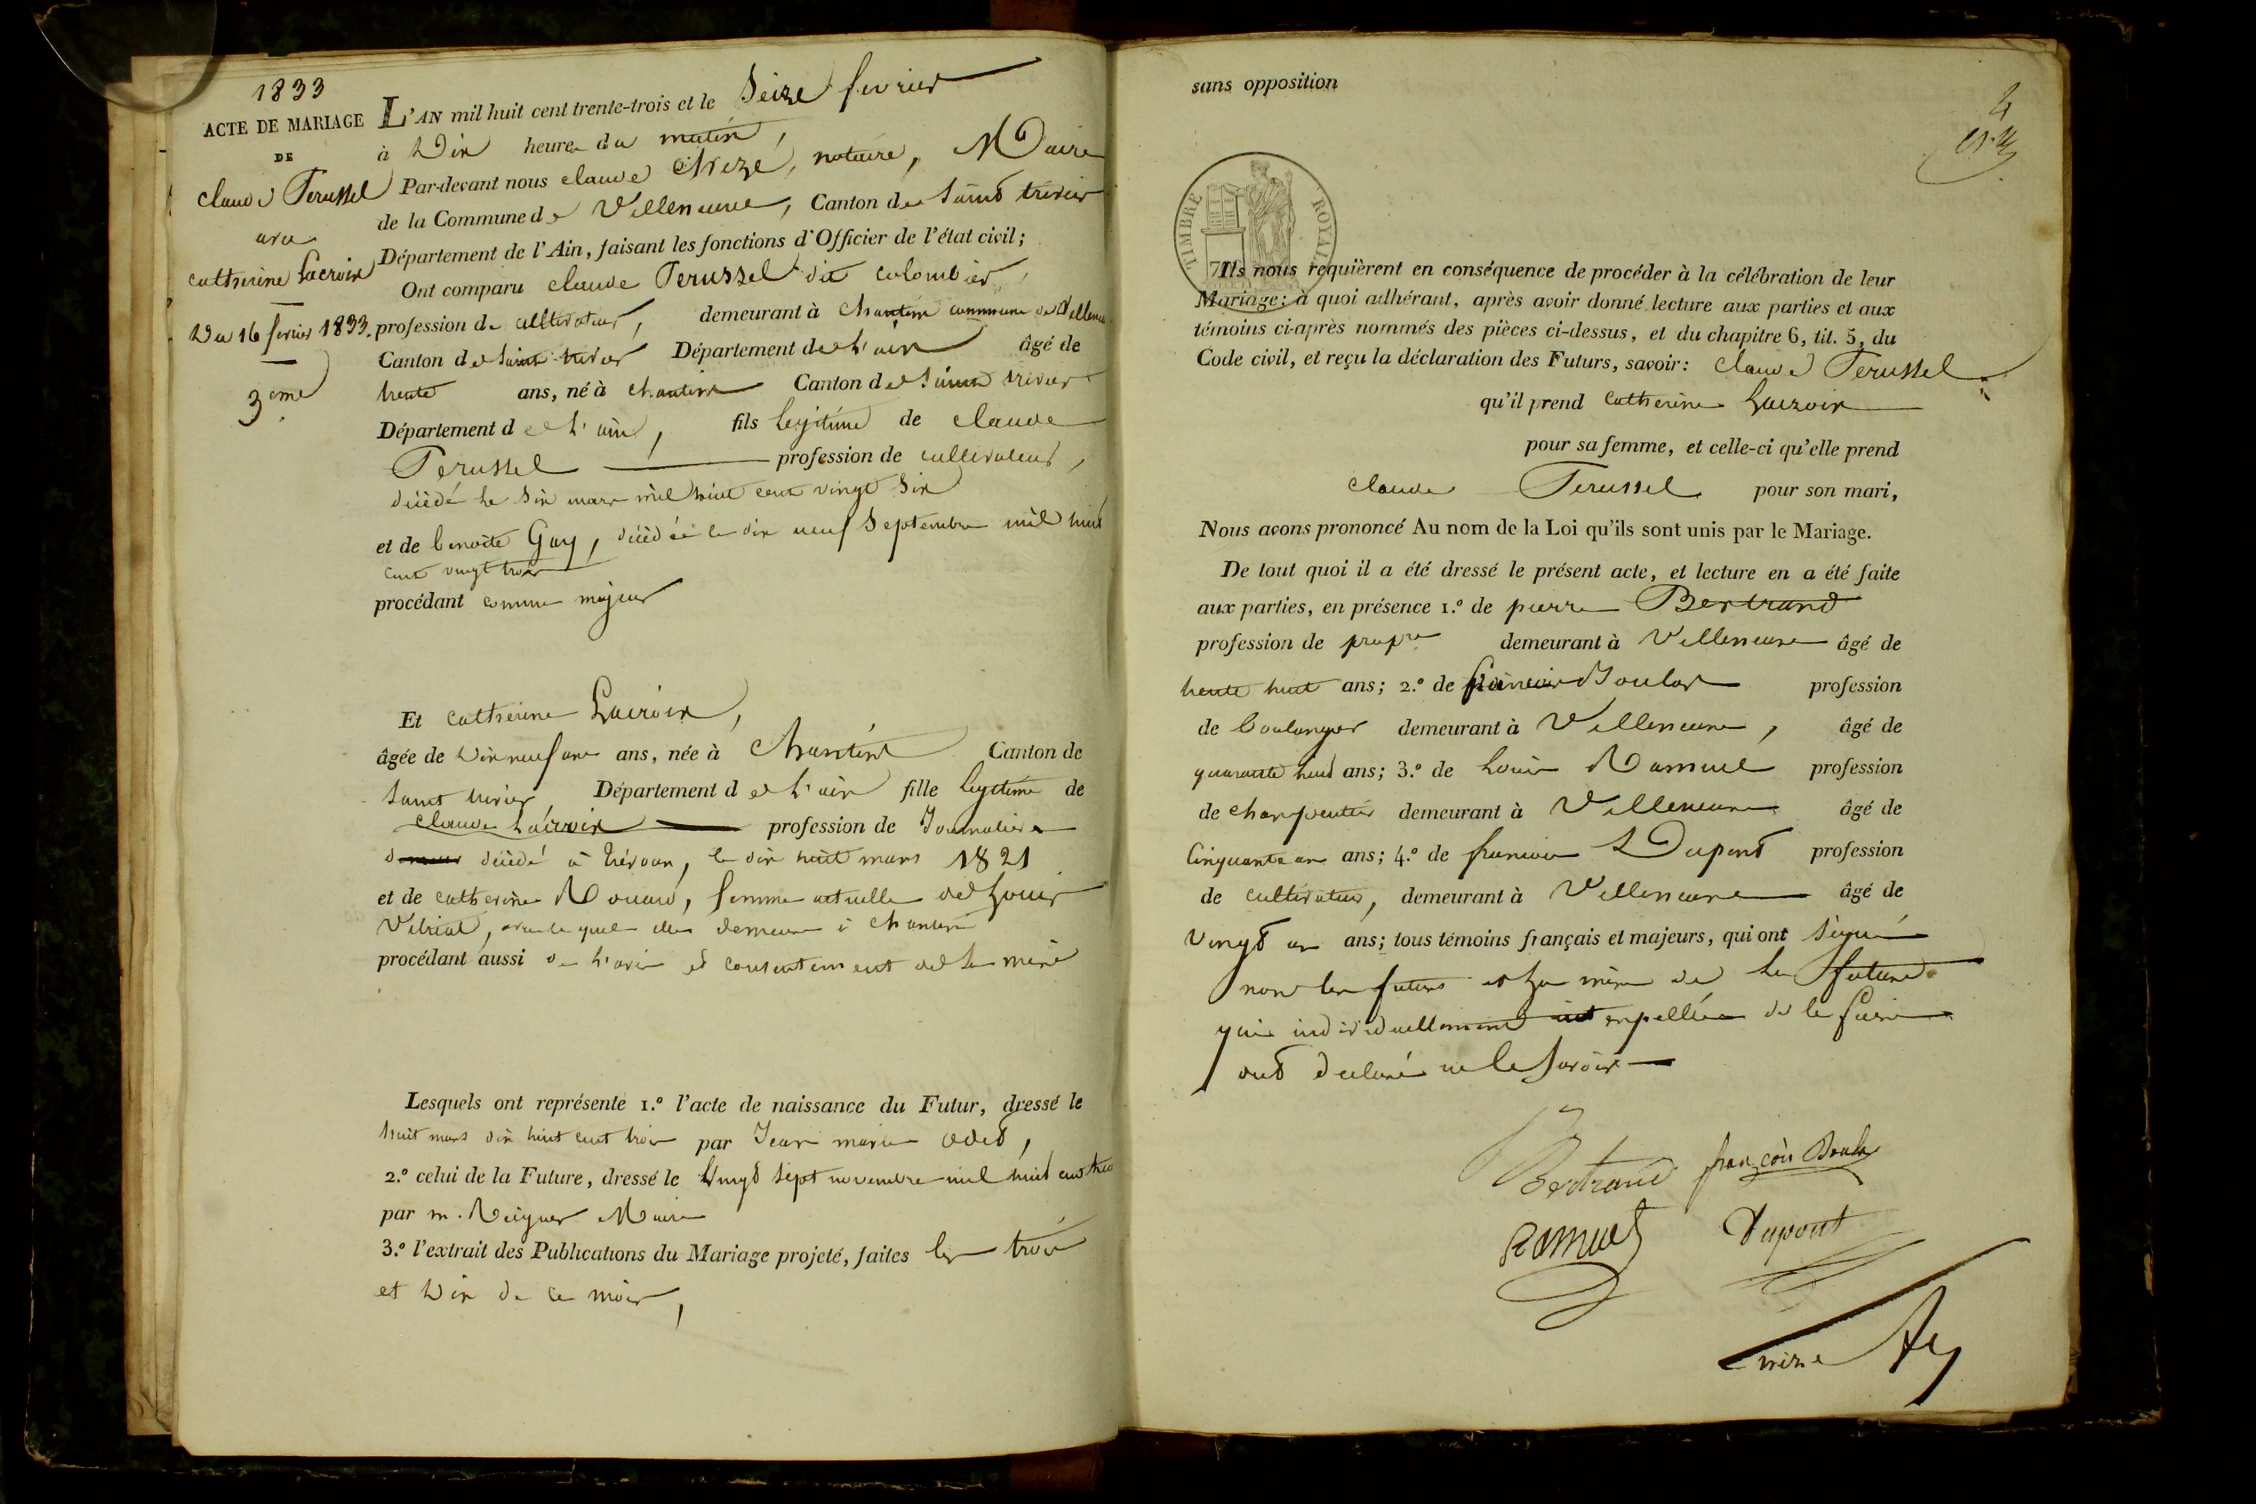 1833
ACTE DE MARIAGE
DE
Claude Perussel
avec
Catherine Lacroix
Du 16 fevrier 1833.
3eme
L'AN mil huit cent trente-trois et le Seize fevrier
à Dix heure du matin,
Par-devant nous Claude Chizé, notaire, Maire
de la Commune de Villeneuve, Canton de Saint trivier
Département de l'Ain, faisant les fonctions d'Officier de l'état civil;
Ont comparu Claude Perussel dit colombier,
profession de cultivateur, demeurant à Chantein commune de Villeneuve
Canton de Saint trivier Département de l'ain âgé de
trente ans, né à Chantein Canton de Saint trivier
Département de l'ain, fils legitime de Claude
Perussel profession de cultivateur,
décédé le Six mars mil huit cent vingt Six
et de benoite Guy, décédée le dix neuf Septembre mil huit
cent vingt trois
procédant comme majeur
Et Catherine Lacroix,
âgée de Dix neuf ans ans, née à Chantein Canton de
Saint trivier Département de l'ain fille legitime de
Claude Lacroix profession de Journalier
décédé à trévoux, le dix huit mars 1821
et de Catherine, femme actuelle de Louis
avec lequel elle demeure à Chantein
procédant aussi de l'avis et consentement de Sa mère
Lesquels ont représenté 1.º l'acte de naissance du Futur, dressé le
huit mars dix huit cent trois par Jean marie Odet,
2.º celui de la Future, dressé le Vingt Sept novembre mil huit cent
par m. Maire
3.º l'extrait des Publications du Mariage projeté, faites les trois
et Dix de ce mois,
sans opposition
4
TIMBRE ROYAL
7
Ils nous requièrent en conséquence de procéder à la célébration de leur
Mariage; à quoi adhérant, après avoir donné lecture aux parties et aux
témoins ci-après nommés des pièces ci-dessus, et du chapitre 6, tit. 5, du
Code civil, et reçu la déclaration des Futurs, savoir: Claude Perussel
qu'il prend Catherine Lacroix
pour sa femme, et celle-ci qu'elle prend
Claude Perussel pour son mari,
Nous avons prononcé Au nom de la Loi qu'ils sont unis par le Mariage.
De tout quoi il a été dressé le présent acte, et lecture en a été faite
aux parties, en présence 1.º de pierre Bertrand
profession de propre demeurant à Villeneuve âgé de
trente huit ans; 2.º de francois profession
de boulanger demeurant à Villeneuve, âgé de
quarante huit ans; 3.º de Louis Ramuel profession
de charpentier demeurant à Villeneuve âgé de
Cinquante ans ans; 4.º de francois Dupont profession
de cultivateur, demeurant à Villeneuve âgé de
Vingt un ans; tous témoins français et majeurs, qui ont Signé
non les futurs et la mère de la future
qui individuellement interpellés de le faire
ont déclaré ne le Savoir
Bertrand françois
Ramuel Dupont
Chize